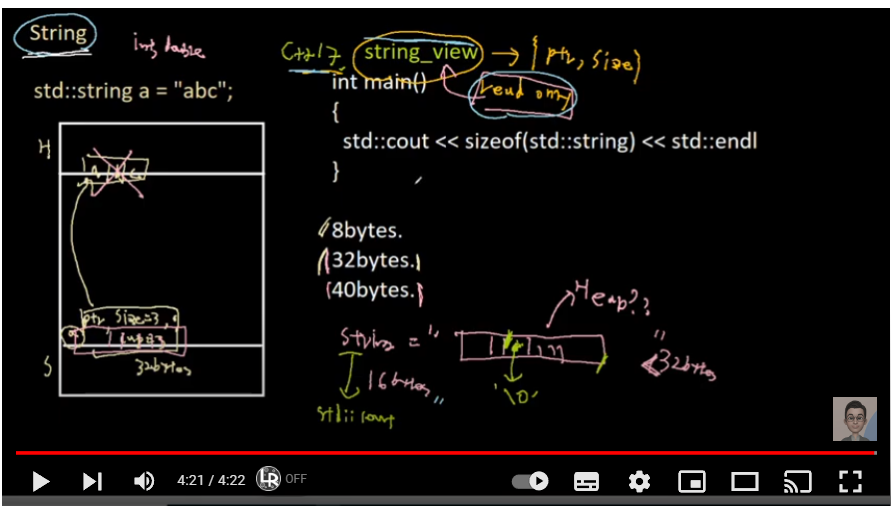 String
std::string a = "abc";
H
ptr size=3,
32bytes
S
C++17 string_view → { ptr, size }
read only
int main()
{
std::cout << sizeof(std::string) << std::endl
}
8bytes.
32bytes.
40bytes.
Heap??
string = "
"
16bytes"
'\0'
<32bytes
4:21 / 4:22
LR OFF